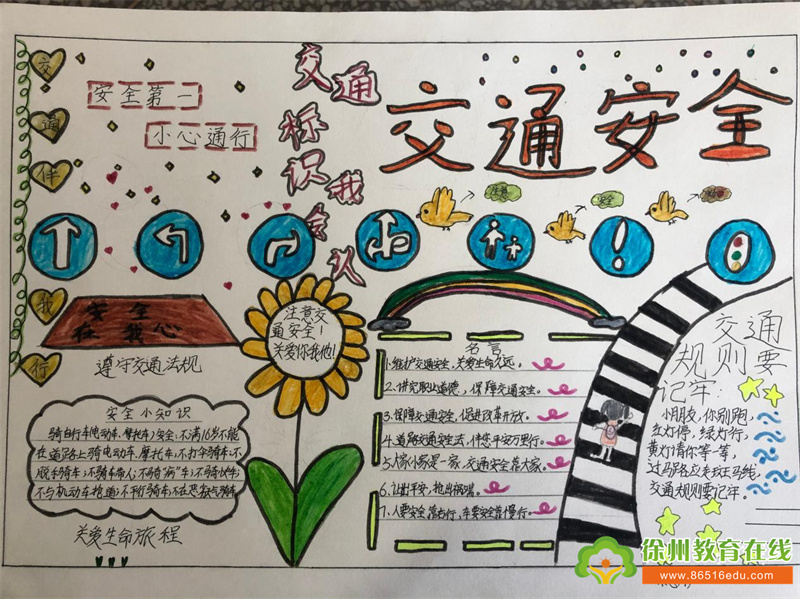 交
通
伴
我
行
安全第一
小心通行
交通
标识
我会认
交通安全
注意
安全
安全
在我心
遵守交通法规
注意交
通安全!
关爱你我他!
安全小知识
骑自行车电动车、摩托车)安全:不满16岁不能
在道路上骑电动车、摩托车;不打伞骑车;不
脱手骑车;不骑车带人;不骑"病"车;不骑快车;
关爱生命旅程
名言
1.维护交通安全,关爱生命久远。
2、讲究职业道德,保障交通安全。
3.保障交通安全,促进改革开放。
4.道路交通安全法,伴您平安万里行。
5、大家小家是一家,交通安全靠大家。
6.让出平安,抢出祸端。
7、人要安全靠右行,车要安全靠慢行。
交通
规则要
记牢:
小朋友,你别跑,
红灯停,绿灯行,
黄灯请你等一等,
过马路应走斑马线,
交通规则要记牢
徐州教育在线
www.86516edu.com